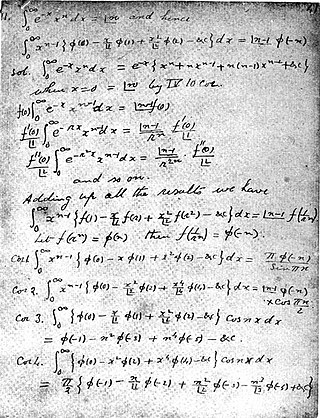 ∫₀^∞ e^{-x} x^n dx = |n and hence
∫₀^∞ x^{n-1} {φ(0) − x/|1 φ(1) + x²/|2 φ(2) − &c} dx = |n-1 φ(-n)
Sol. ∫₀^∞ e^{-x} x^n dx = e^{-x} {x^n + n x^{n-1} + n(n-1) x^{n-2} + &c}
when x = 0 = |n by IV 10 cor.
f(0) ∫₀^∞ e^{-x} x^{n-1} dx = |n-1 f(0)
f'(0)/|1 ∫₀^∞ e^{-rx} x^{n-1} dx = |n-1/r^n f'(0)/|1
f''(0)/|2 ∫₀^∞ e^{-r²x} x^{n-1} dx = |n-1/r^{2n} f''(0)/|2
and so on.
Adding up all the results we have
∫₀^∞ x^{n-1} {f(1) − x/|1 f(r) + x²/|2 f(r²) − &c} dx = |n-1 f(1/r^n)
Let f(r^n) = φ(n) then f(1/r^n) = φ(-n).
Cor 1 ∫₀^∞ x^{n-1} {φ(0) − x φ(1) + x² φ(2) − &c} dx = π φ(-n)/Sin πn
Cor 2. ∫₀^∞ x^{n-1} {φ(0) − x²/|2 φ(2) + x⁴/|4 φ(4) − &c} dx = |n-1 φ(-n) × Cos πn/2
Cor 3. ∫₀^∞ {φ(0) − x/|1 φ(1) + x²/|2 φ(2) − &c} cos nx dx
= φ(-1) − n² φ(-3) + n⁴ φ(-5) − &c.
Cor 4. ∫₀^∞ {φ(0) − x² φ(2) + x⁴ φ(4) − &c} cos nx dx
= π/2 {φ(-1) − n/|1 φ(-2) + n²/|2 φ(-3) − n³/|3 φ(-4) + &c}